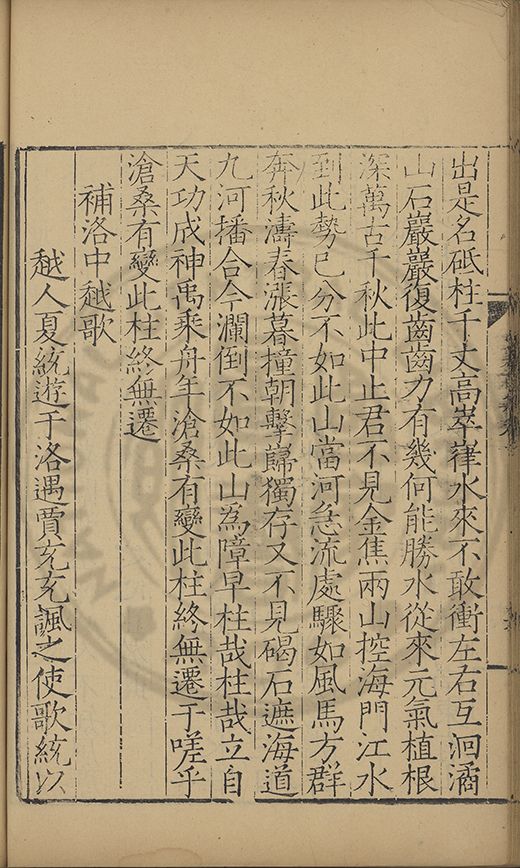 出是名砥柱千丈高崒嵂水來不敢衝左右互洄潏
山石巖巖復齒齒力有幾何能勝水從來元氣植根
深萬古千秋此中止君不見金焦兩山控海門江水
到此勢已分不如此山當河急流處驟如風馬方群
奔秋濤春漲暮撞朝擊巋獨存又不見碣石遮海道
九河播合今瀾倒不如此山為障早柱哉柱哉立自
天功成神禹乘舟年滄桑有變此柱終無遷于嗟乎
滄桑有變此柱終無遷
補洛中越歌
越人夏統遊于洛遇賈充充諷之使歌統以